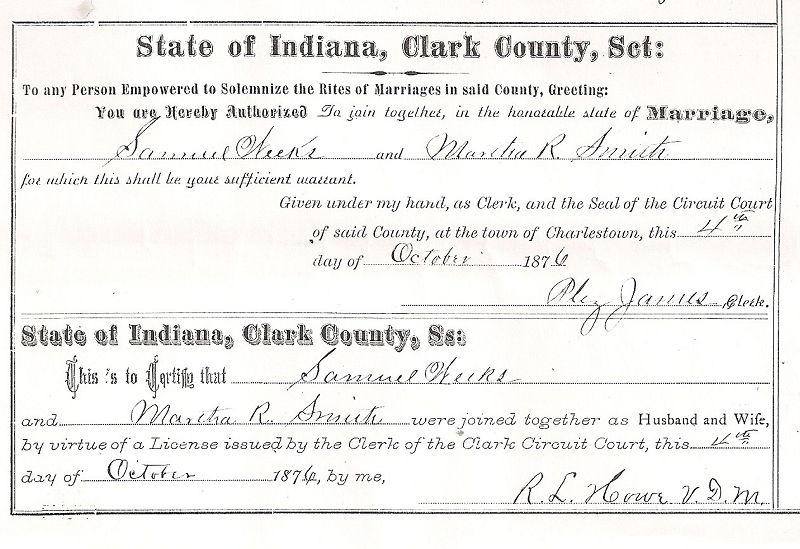 State of Indiana, Clark County, Sct:
To any Person Empowered to Solemnize the Rites of Marriages in said County, Greeting:
You are Hereby Authorized To join together, in the honorable state of Marriage,
Samuel Weeks and Martha R. Smith
for which this shall be your sufficient warrant.
Given under my hand, as Clerk, and the Seal of the Circuit Court
of said County, at the town of Charlestown, this 4th
day of October 1876
Plez James Clerk.
State of Indiana, Clark County, Ss:
This is to Certify that Samuel Weeks
and Martha R. Smith were joined together as Husband and Wife,
by virtue of a License issued by the Clerk of the Clark Circuit Court, this 4th
day of October 1876, by me,
R. L. Howe V. D. M.